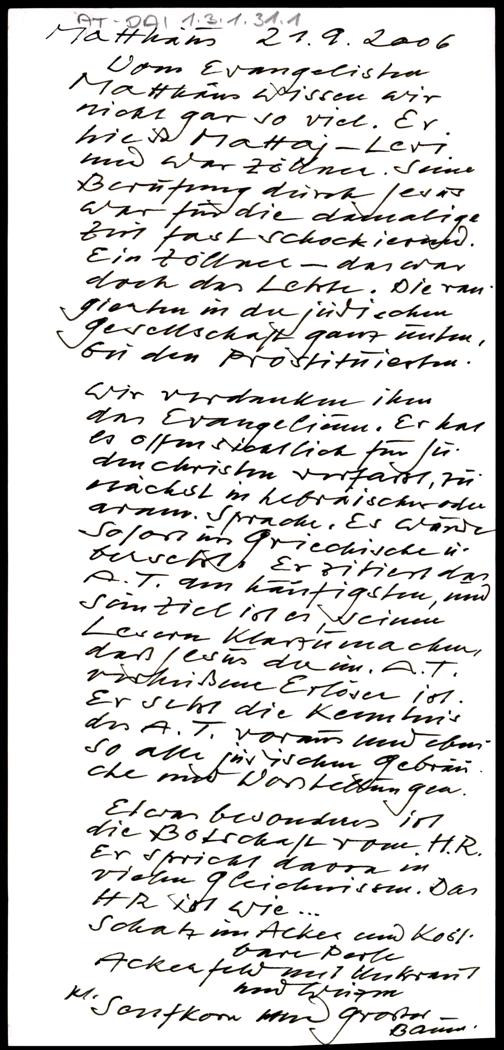 AT-DAI 1.3.1.31.1
Matthäus 21.9.2006
Vom Evangelisten
Matthäus wissen wir
nicht gar so viel. Er
hiess Mattaj-Levi
und war Zöllner. Seine
Berufung durch Jesus
war für die damalige
Zeit fast schockierend.
Ein Zöllner – das war
doch das Letzte. Die ran-
gierten in der jüdischen
Gesellschaft ganz unten,
bei den Prostituierten.
Wir verdanken ihm
das Evangelium. Er hat
es offensichtlich für Ju-
denchristen verfasst, zu
nächst in hebräischer oder
aram. Sprache. Es wurde
sofort ins Griechische ü-
bersetzt. Er zitiert das
A.T. am häufigsten, und
sein Ziel ist es, seinen
Lesern klarzumachen,
daß Jesus der im A.T.
verheißene Erlöser ist.
Er setzt die Kenntnis
des A.T. voraus und eben-
so alle jüdischen Gebräu-
che und Vorstellungen.
Etwas besonderes ist
die Botschaft vom H.R.
Er spricht davon in
vielen Gleichnissen. Das
HR ist wie...
Schatz im Acker und Kost-
bare Perle
Ackerfeld mit Unkraut
und Weizen
kl. Senfkorn und großer
Baum.